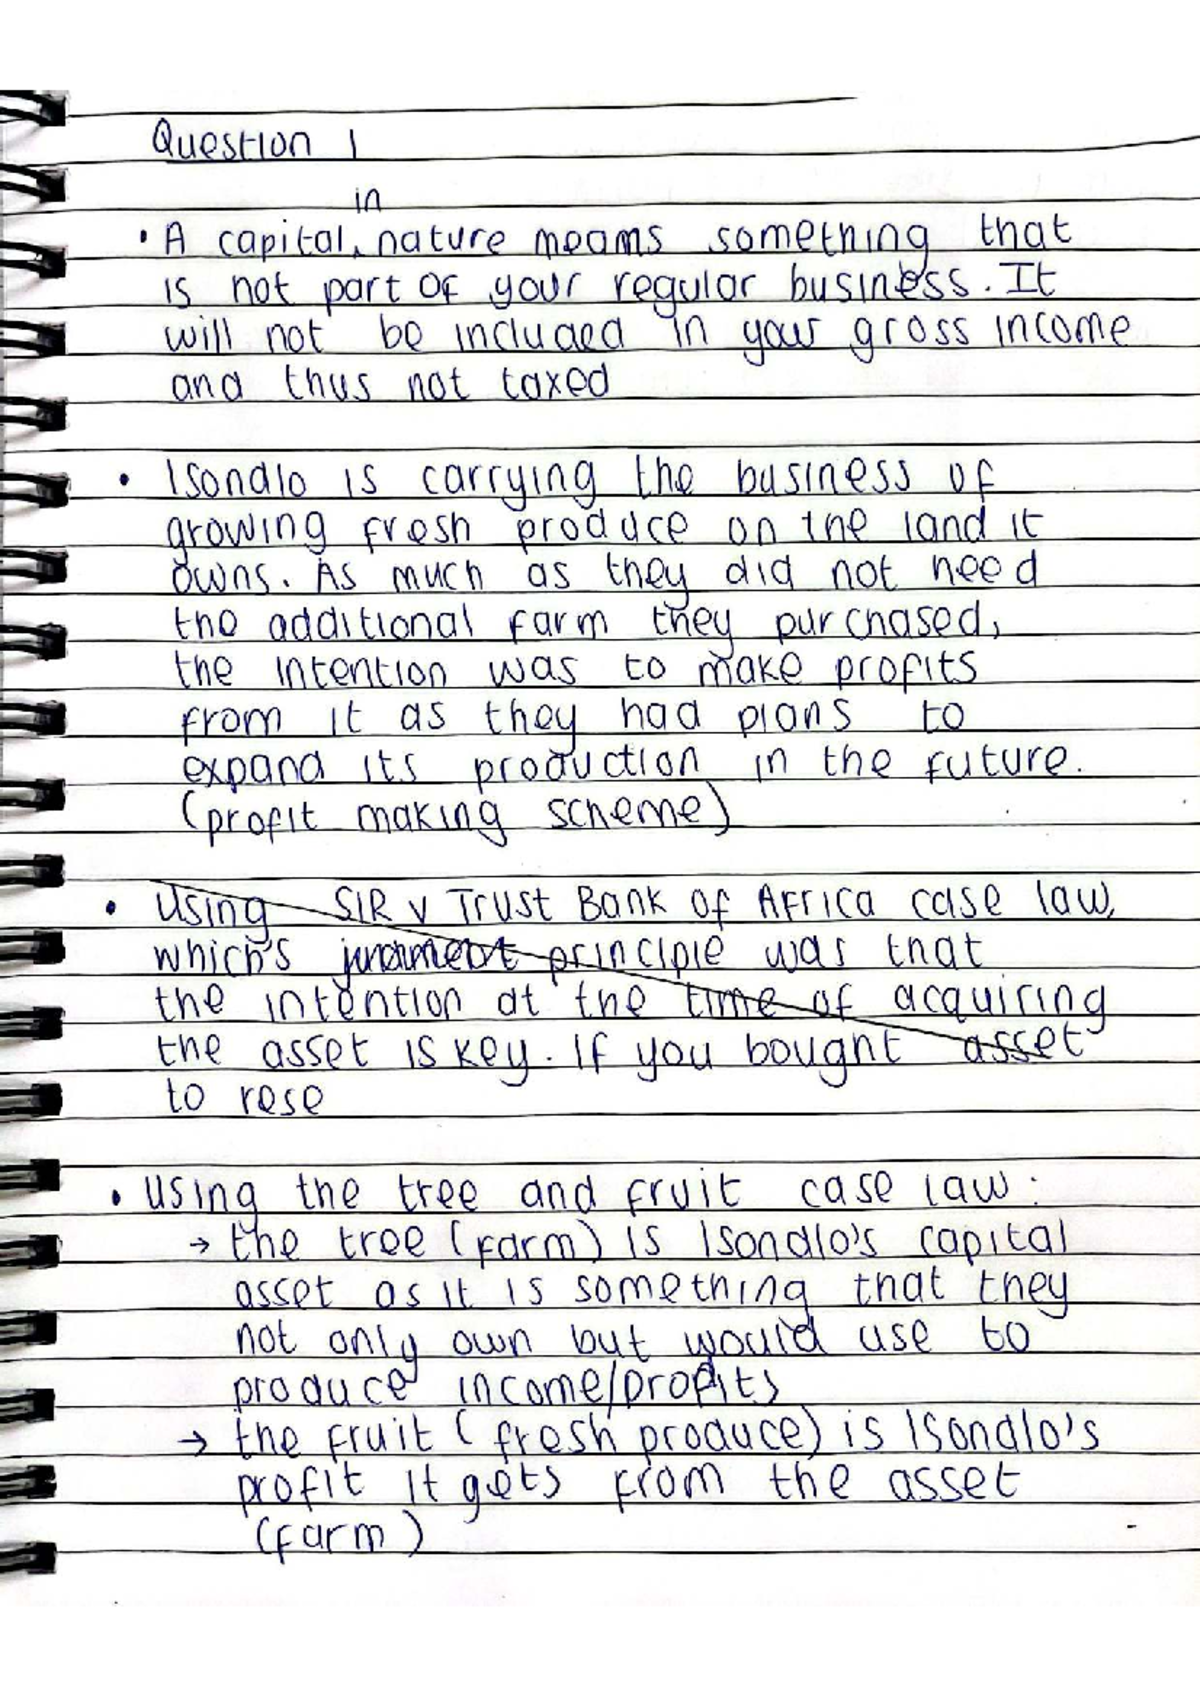 Question 1
in
• A capital, nature means something that
is not part of your regular business. It
will not be included in your gross income
and thus not taxed
• Isondlo is carrying the business of
growing fresh produce on the land it
owns. As much as they did not need
the additional farm they purchased,
the intention was to make profits
from it as they had plans to
expand its production in the future.
(profit making scheme)
• Using SIR v Trust Bank of Africa case law,
which's judgment principle was that
the intention at the time of acquiring
the asset is key. If you bought asset
to rese
• using the tree and fruit case law:
→ the tree (farm) is Isondlo's capital
asset as it is something that they
not only own but would use to
produce income/profits
→ the fruit (fresh produce) is Isondlo's
profit it gets from the asset
(farm)